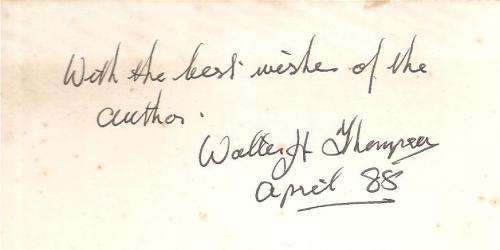 With the best wishes of the
author.
Walter H Thompson
April 88